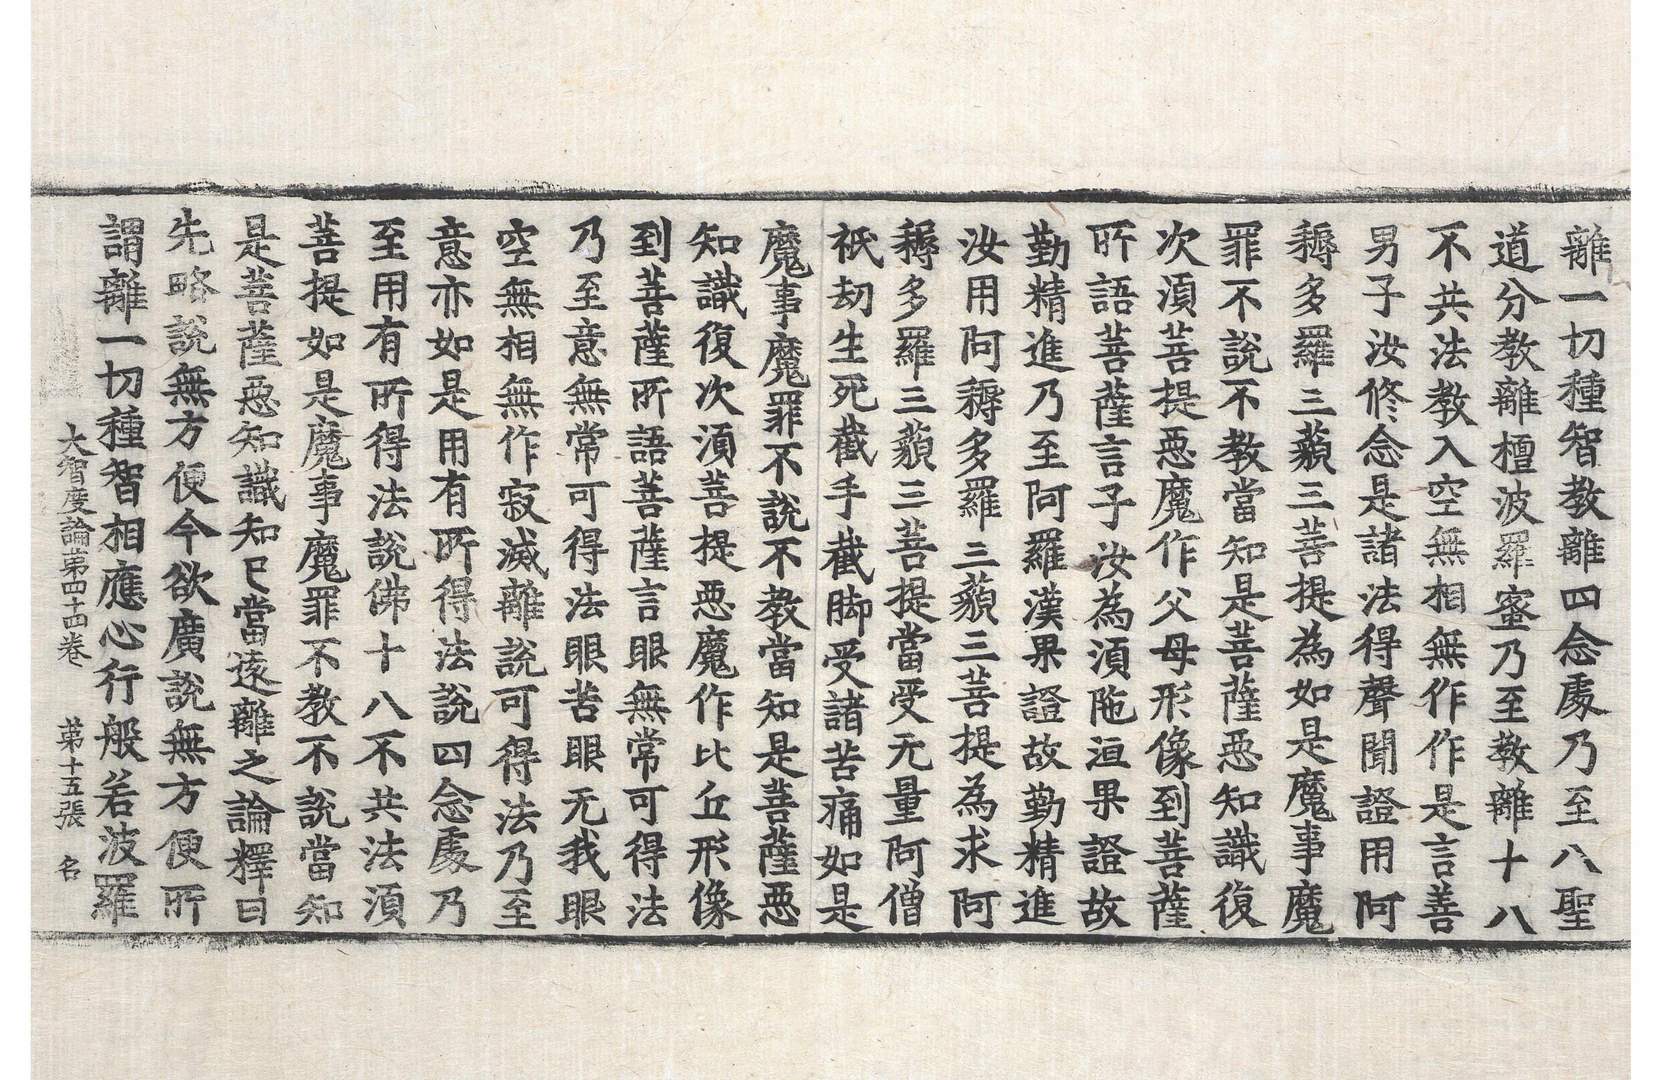 離一切種智教離四念處乃至八聖
道分教離檀波羅蜜乃至教離十八
不共法教入空無相無作作是言善
男子汝修念是諸法得聲聞證用阿
耨多羅三藐三菩提為如是魔事魔
罪不說不教當知是菩薩惡知識復
次湏菩提惡魔作父母形像到菩薩
所語菩薩言子汝為湏陁洹果證故
勤精進乃至阿羅漢果證故勤精進
汝用阿耨多羅三藐三菩提為求阿
耨多羅三藐三菩提當受无量阿僧
祇劫生死截手截脚受諸苦痛如是
魔事魔罪不說不教當知是菩薩惡
知識復次湏菩提惡魔作比丘形像
到菩薩所語菩薩言眼無常可得法
乃至意無常可得法眼苦眼无我眼
空無相無作寂滅離說可得法乃至
意亦如是用有所得法說四念處乃
至用有所得法說佛十八不共法湏
菩提如是魔事魔罪不教不說當知
是菩薩惡知識知已當遠離之論釋曰
先略說無方便今欲廣說無方便所
謂離一切種智相應心行般若波羅
大智度論第四十四卷 第十五張 名